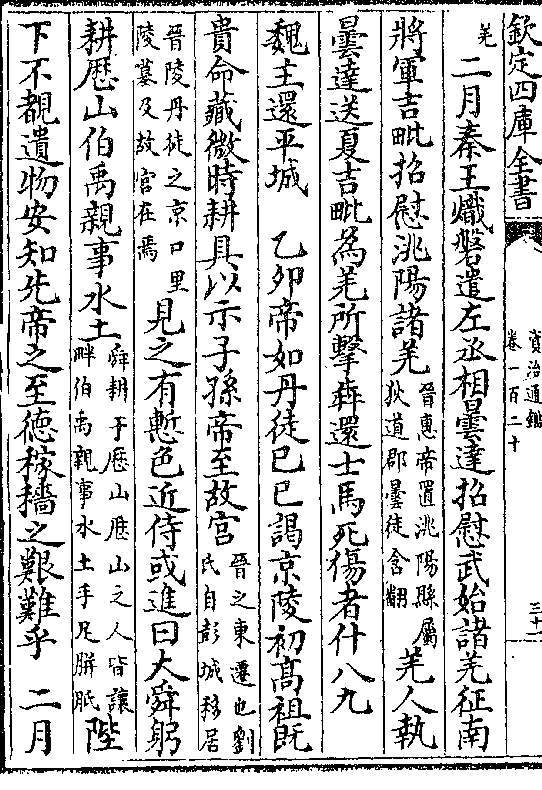 欽定四庫全書
資治通鑑
卷一百二十
三十二
羌 二月秦王熾磐遣左丞相曇達招慰武始諸羌征南
將軍吉毗招慰洮陽諸羌晉惠帝置洮陽縣屬狄道郡曇徒含翻羌人執
曇達送夏吉毗為羌所擊奔還士馬死傷者什八九
魏主還平城 乙卯帝如丹徒己巳謁京陵初髙祖既
貴命藏微時耕具以示子孫帝至故宫晉之東遷也劉氏自彭城移居
晉陵丹徒之京口里陵墓及故宫在焉見之有慙色近侍或進曰大舜躬
耕歴山伯禹親事水土舜耕于歴山歴山之人皆讓畔伯禹親事水土手足胼胝陛
下不覩遺物安知先帝之至徳稼穡之艱難乎 二月